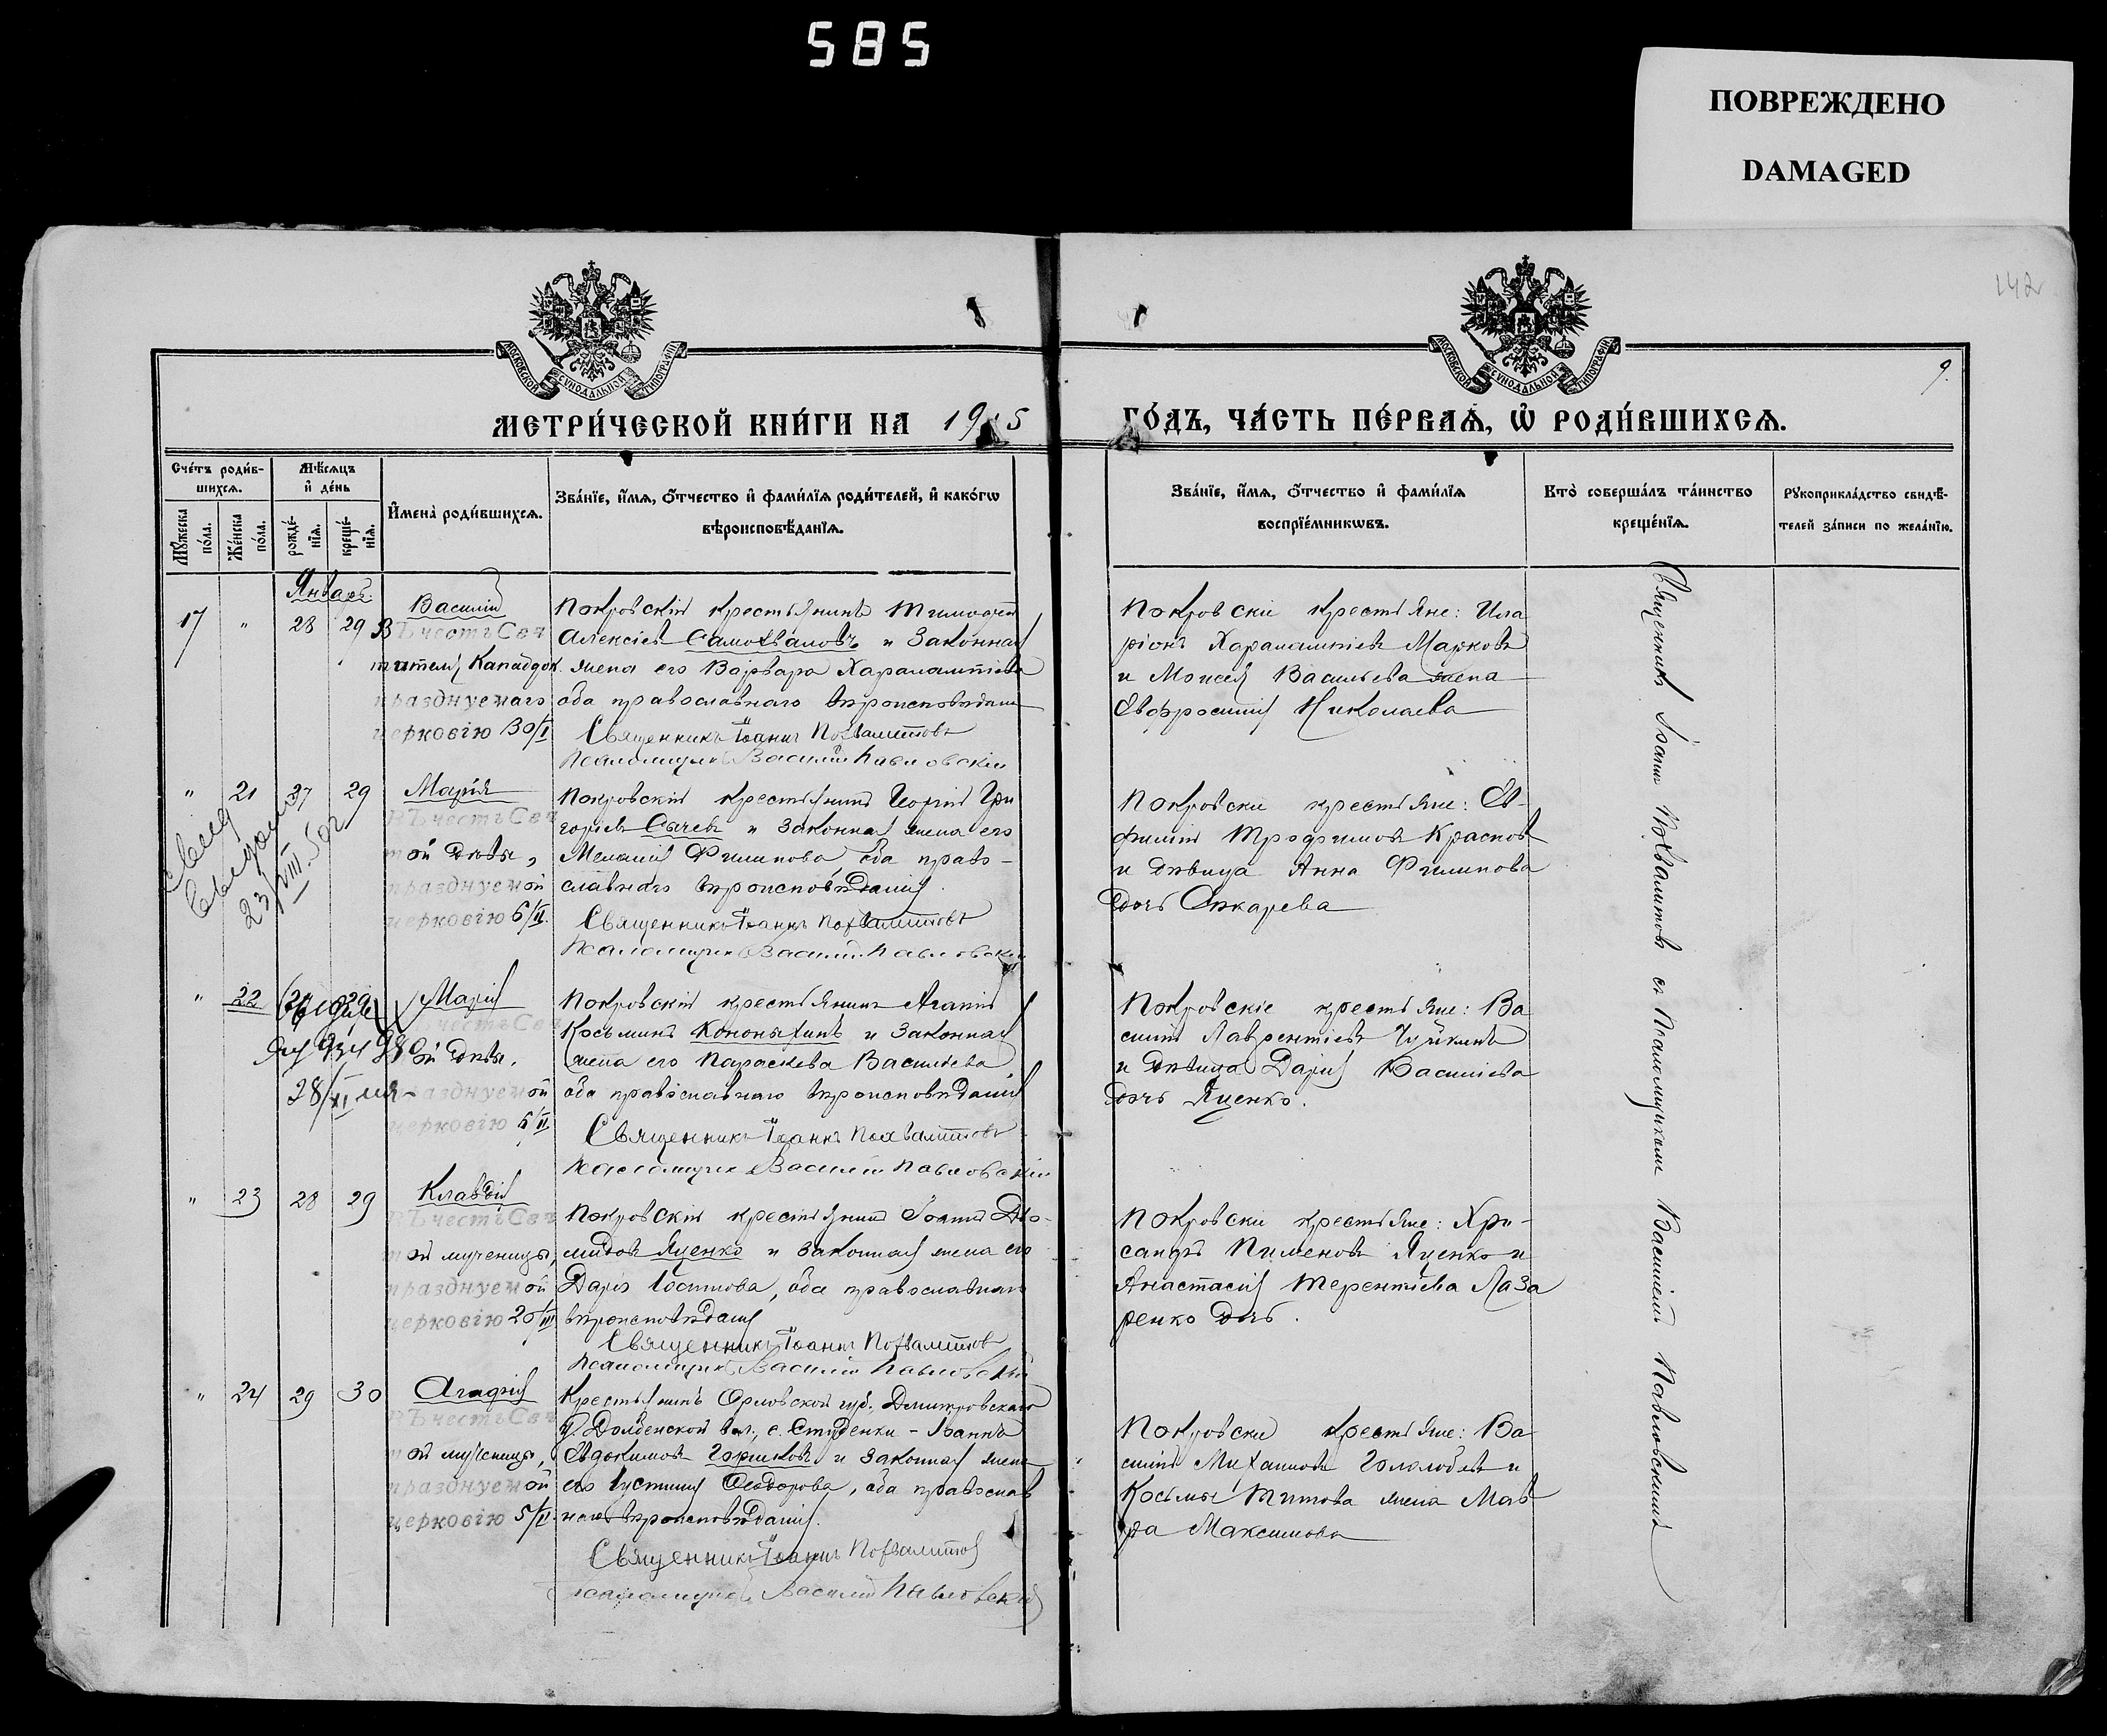 585
ПОВРЕЖДЕНО
DAMAGED
142
9.
МОСКОВСКОЙ СѴНОДАЛЬНОЙ ТИПОГРАФІИ
МОСКОВСКОЙ СѴНОДАЛЬНОЙ ТИПОГРАФІИ
МЕТРИ́ЧЕСКОЙ КНИ́ГИ НА 19 5 ГО́ДЪ, ЧА́СТЬ ПЕ́РВАѦ, Ѡ҆ РОДИ́ВШИХСѦ.
Сче́тъ роди́в-
шихсѧ.
Мѣ́сѧцъ
и҆ де́нь
Мꙋ́жеска
по́ла.
Же́нска
по́ла.
рожде́-
нїѧ.
креще́-
нїѧ.
И҆мена̀ роди́вшихсѧ.
Зва́нїе, и҆́мѧ, ѻ҆́тчество и҆ фами́лїѧ роди́телей, и҆ како́гѡ
вѣроисповѣ́данїѧ.
Зва́нїе, и҆́мѧ, ѻ҆́тчество и҆ фами́лїѧ
воспрїе́мникѡвъ.
Кто̀ соверша́лъ та́инство
креще́нїѧ.
Рꙋкоприкла́дство свидѣ́-
телей за́писи по жела́нїю.
Январь
17 " 28 29 Василій
Въ честь Свя
тителя Кападок.
празднуемаго
церковію 30/I
Покровскій крестьянинъ Тимофей
Алексіевъ Самохваловъ и законная
жена его Варвара Харалампіева
оба православнаго вѣроисповѣданія
Священникъ Іоаннъ Похвалитовъ
Псаломщикъ Василій Павловскій
Покровскіе крестьяне: Ила
ріонъ Харалампіевъ Марковъ
и Моисея Васильева жена
Евфросинія Николаева
" 21 27 29 Марія
Въ честь Свя
той Дѣвы,
празднуемой
церковію 6/II.
23/VIII 50г
Покровскій крестьянинъ Георгій Гри
горіевъ Сычевъ и законная жена его
Меланія Филипова оба право-
славнаго вѣроисповѣданія.
Священникъ Іоаннъ Похвалитовъ
Псаломщикъ Василій Павловскій
Покровскіе крестьяне: Ев-
фимій Трофимовъ Красновъ
и дѣвица Анна Филипова
дочь
" 22 29 Марія
Въ честь Свя
ой Дѣвы,
празднуемой
церковію 6/II
28/XI
Покровскій крестьянинъ Агапій
Косьминъ Кононыхинъ и законная
жена его Параскева Васильева
оба православнаго вѣроисповѣданія
Священникъ Іоаннъ Похвалитовъ
Псаломщикъ Василій Павловскій
Покровскіе крестьяне: Ва
силій Лаврентіевъ Чуйкинъ
и дѣвица Дарія Василіева
дочь Яценко.
" 23 28 29 Клавдія
Въ честь Свя
той мученицы,
празднуемой
церковію 20/III
Покровскій крестьянинъ Іоаннъ Діо-
мидовъ Яценко и законная жена его
Дарія, оба православнаго
вѣроисповѣданія
Священникъ Іоаннъ Похвалитовъ
Псаломщикъ Василій Павловскій
Покровскіе крестьяне: Хри-
санфъ Пименовъ Яценко и
Анастасія Терентіева Лаза
ренко дочь.
" 24 29 30 Агафія
Въ честь Свя
той мученицы,
празднуемой
церковію 5/II.
Крестьянинъ Орловской губ. Дмитровскаго
у. Долбенской вол., с. Студенки - Іоаннъ
Евдокимовъ Горшковъ и законная жена
его Іустинія Феодорова, оба православ
наго вѣроисповѣданія.
Священникъ Іоаннъ Похвалитовъ
Псаломщикъ Василій Павловскій
Покровскіе крестьяне: Ва
силій Михаиловъ Гололобовъ и
Косьмы Титова жена Мав
ра Максимова
Священникъ Іоаннъ Похвалитовъ съ Псаломщикомъ Василіемъ Павловскимъ